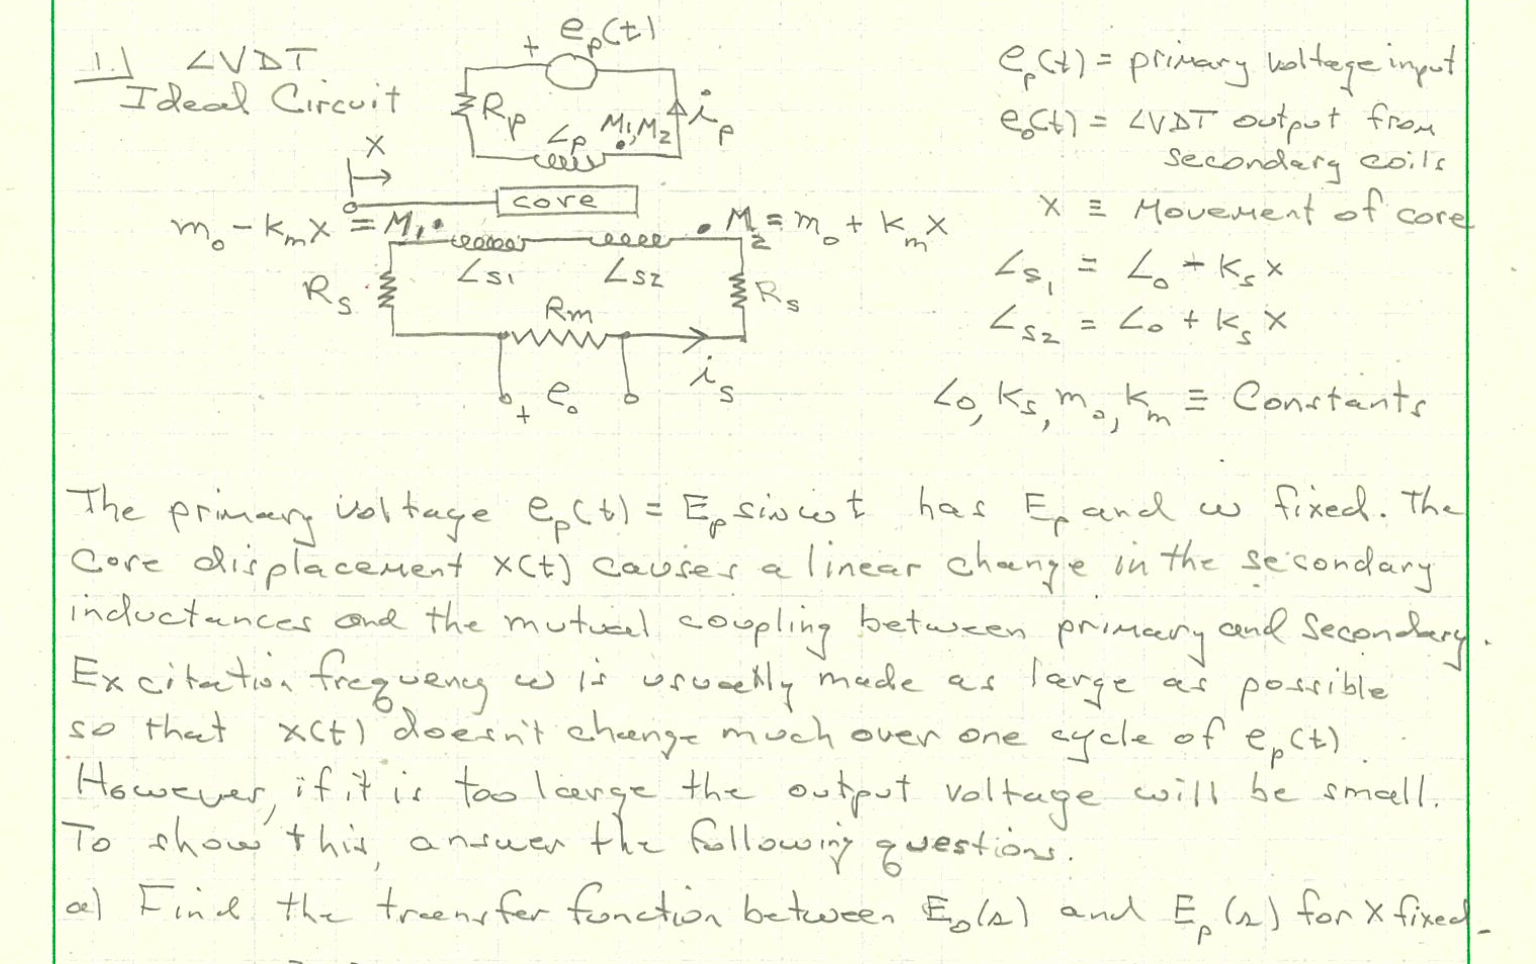 1.) LVDT
Ideal Circuit
+ e_p(t)
R_p
L_p M_1, M_2
i_p
x
core
m_o - k_m x = M_1
M_2 = m_o + k_m x
L_S1 L_S2
R_s
R_s
R_m
i_s
+ e_o
e_p(t) = primary voltage input
e_o(t) = LVDT output from
secondary coils
x ≡ Movement of core
L_s1 = L_o - k_s x
L_s2 = L_o + k_s x
L_o, k_s, m_o, k_m ≡ Constants
The primary voltage e_p(t) = E_p sin ωt has E_p and ω fixed. The
core displacement x(t) causes a linear change in the secondary
inductances and the mutual coupling between primary and secondary.
Excitation frequency ω is usually made as large as possible
so that x(t) doesn't change much over one cycle of e_p(t).
However, if it is too large the output voltage will be small.
To show this, answer the following questions.
a) Find the transfer function between E_o(s) and E_p(s) for x fixed.